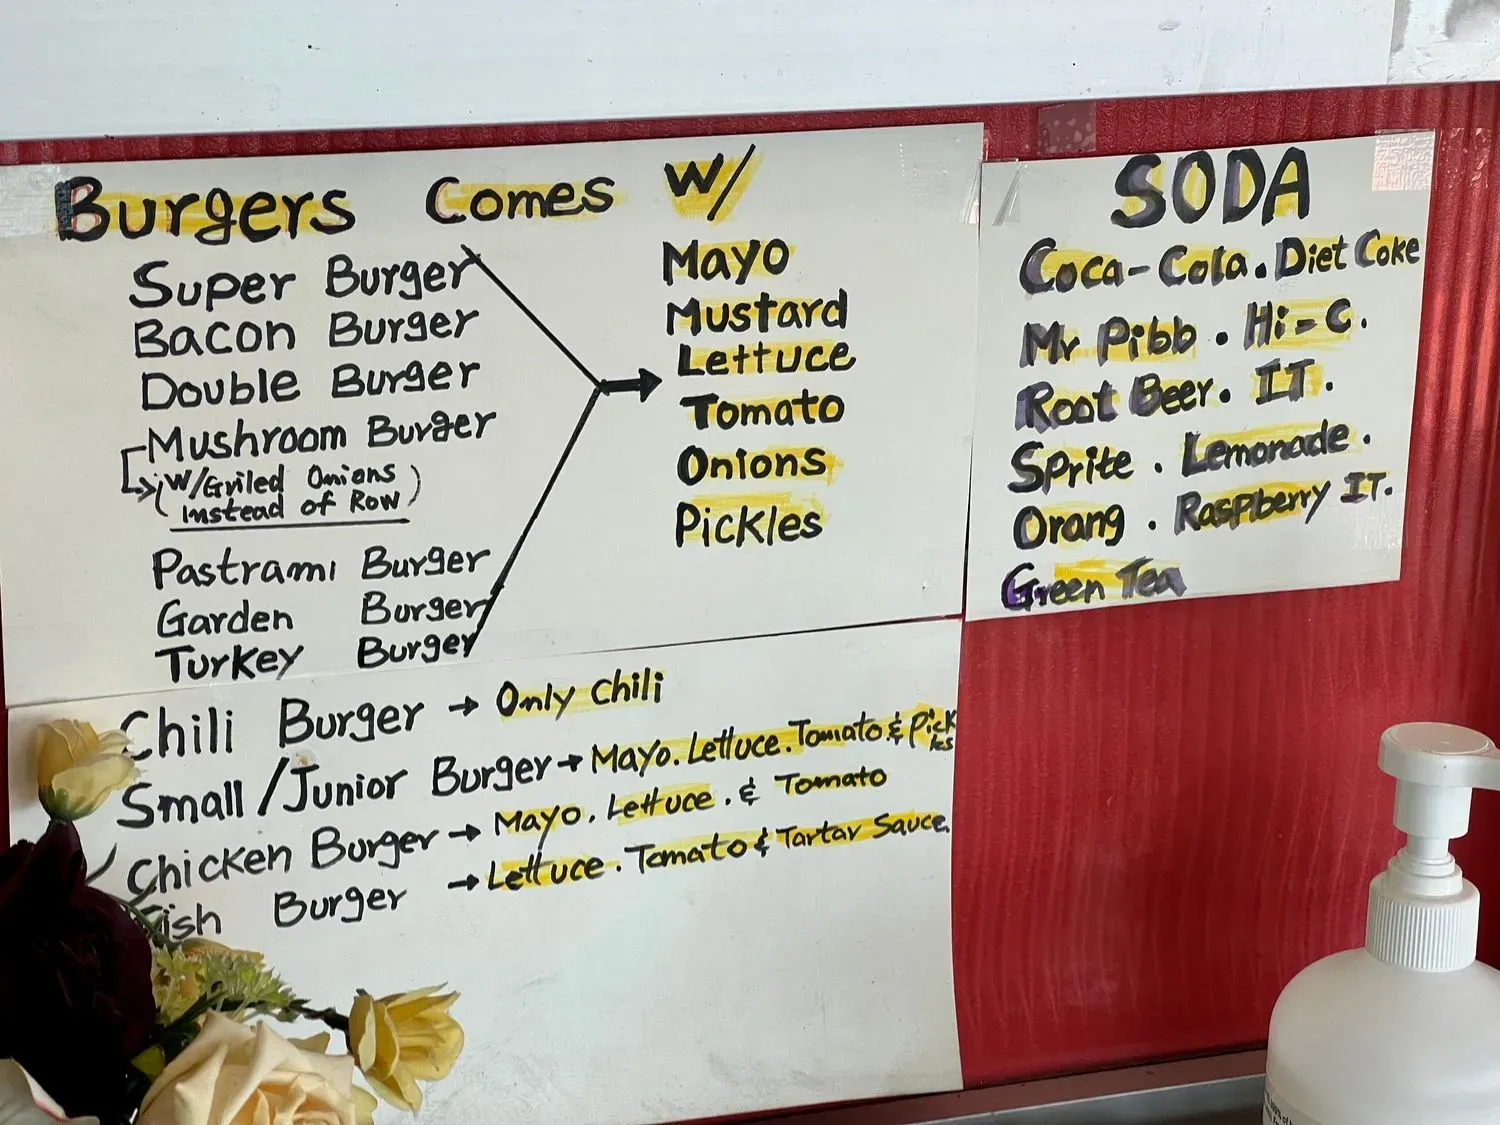 Burgers Comes W/
Super Burger
Bacon Burger
Double Burger
Mushroom Burger
(W/Griled Onions
instead of Row)
Pastrami Burger
Garden Burger
Turkey Burger
Mayo
Mustard
Lettuce
Tomato
Onions
Pickles
Chili Burger → Only Chili
Small/Junior Burger → Mayo. Lettuce. Tomato & Pickles
Chicken Burger → Mayo. Lettuce. & Tomato
Fish Burger → Lettuce. Tomato & Tartar Sauce.
SODA
Coca-Cola. Diet Coke
Mr Pibb. Hi-C.
Root Beer. IT.
Sprite. Lemonade.
Orang. Raspberry IT.
Green Tea